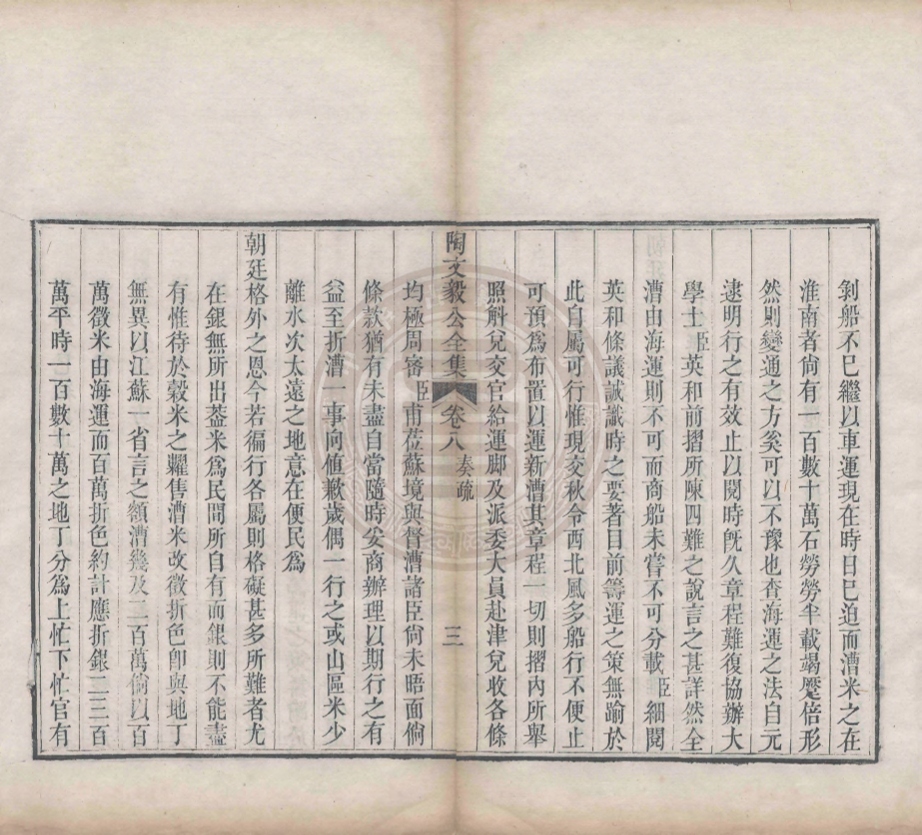 剝船不已繼以車運現在時日已迫而漕米之在
淮南者尙有一百數十萬石勞勞半載竭蹙倍形
然則變通之方奚可以不豫也查海運之法自元
逮明行之有效止以閱時旣久章程難復協辦大
學士臣英和前摺所陳四難之說言之甚詳然全
漕由海運則不可而商船未嘗不可分載臣細閱
英和條議誠識時之要著目前籌運之策無踰於
此自屬可行惟現交秋令西北風多船行不便止
可預爲布置以運新漕其章程一切則摺內所舉
照斛兌交官給運脚及派委大員赴津兌收各條
陶文毅公全集 卷八 奏疏 三
均極周審臣甫莅蘇境與督漕諸臣尙未晤面倘
條款猶有未盡自當隨時妥商辦理以期行之有
益至折漕一事向値歉歲偶一行之或山區米少
離水次太遠之地意在便民爲
朝廷格外之恩今若徧行各屬則格礙甚多所難者尤
在銀無所出葢米爲民間所自有而銀則不能盡
有惟待於穀米之糶售漕米改徵折色卽與地丁
無異以江蘇一省言之額漕幾及二百萬倘以百
萬徵米由海運而百萬折色約計應折銀二三百
萬平時一百數十萬之地丁分爲上忙下忙官有